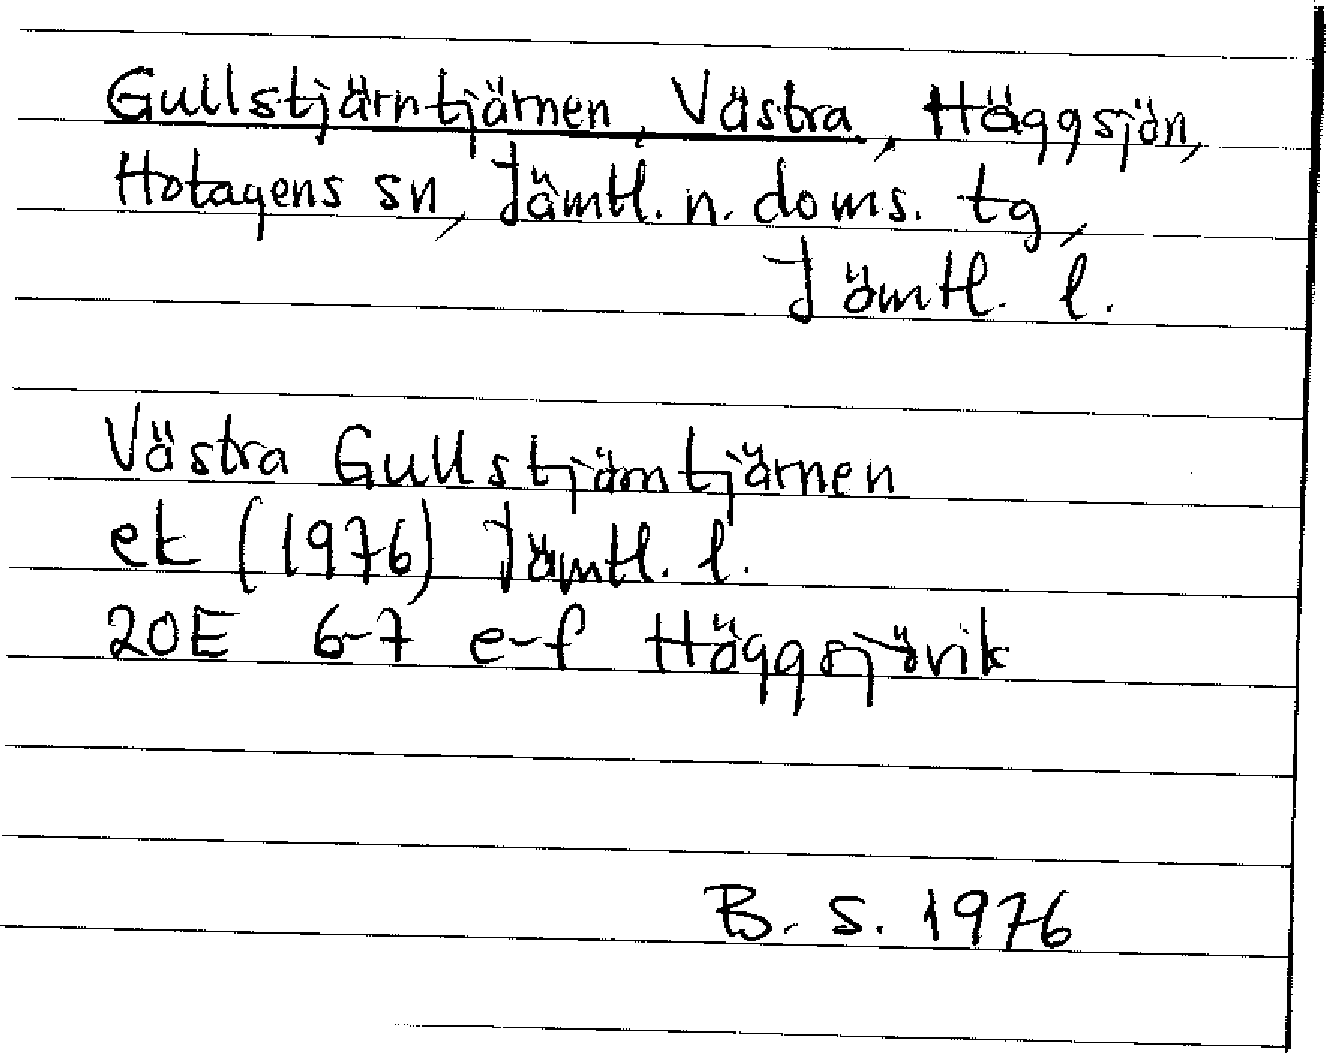 Gullstjärntjärnen, Västra, Häggsjön,
Hotagens sn, Jämtl. n. doms. tg,
Jämtl. l.
Västra Gullstjärntjärnen
ek (1976) Jämtl. l.
20E 6-7 e-f Häggsjövik
B. S. 1976